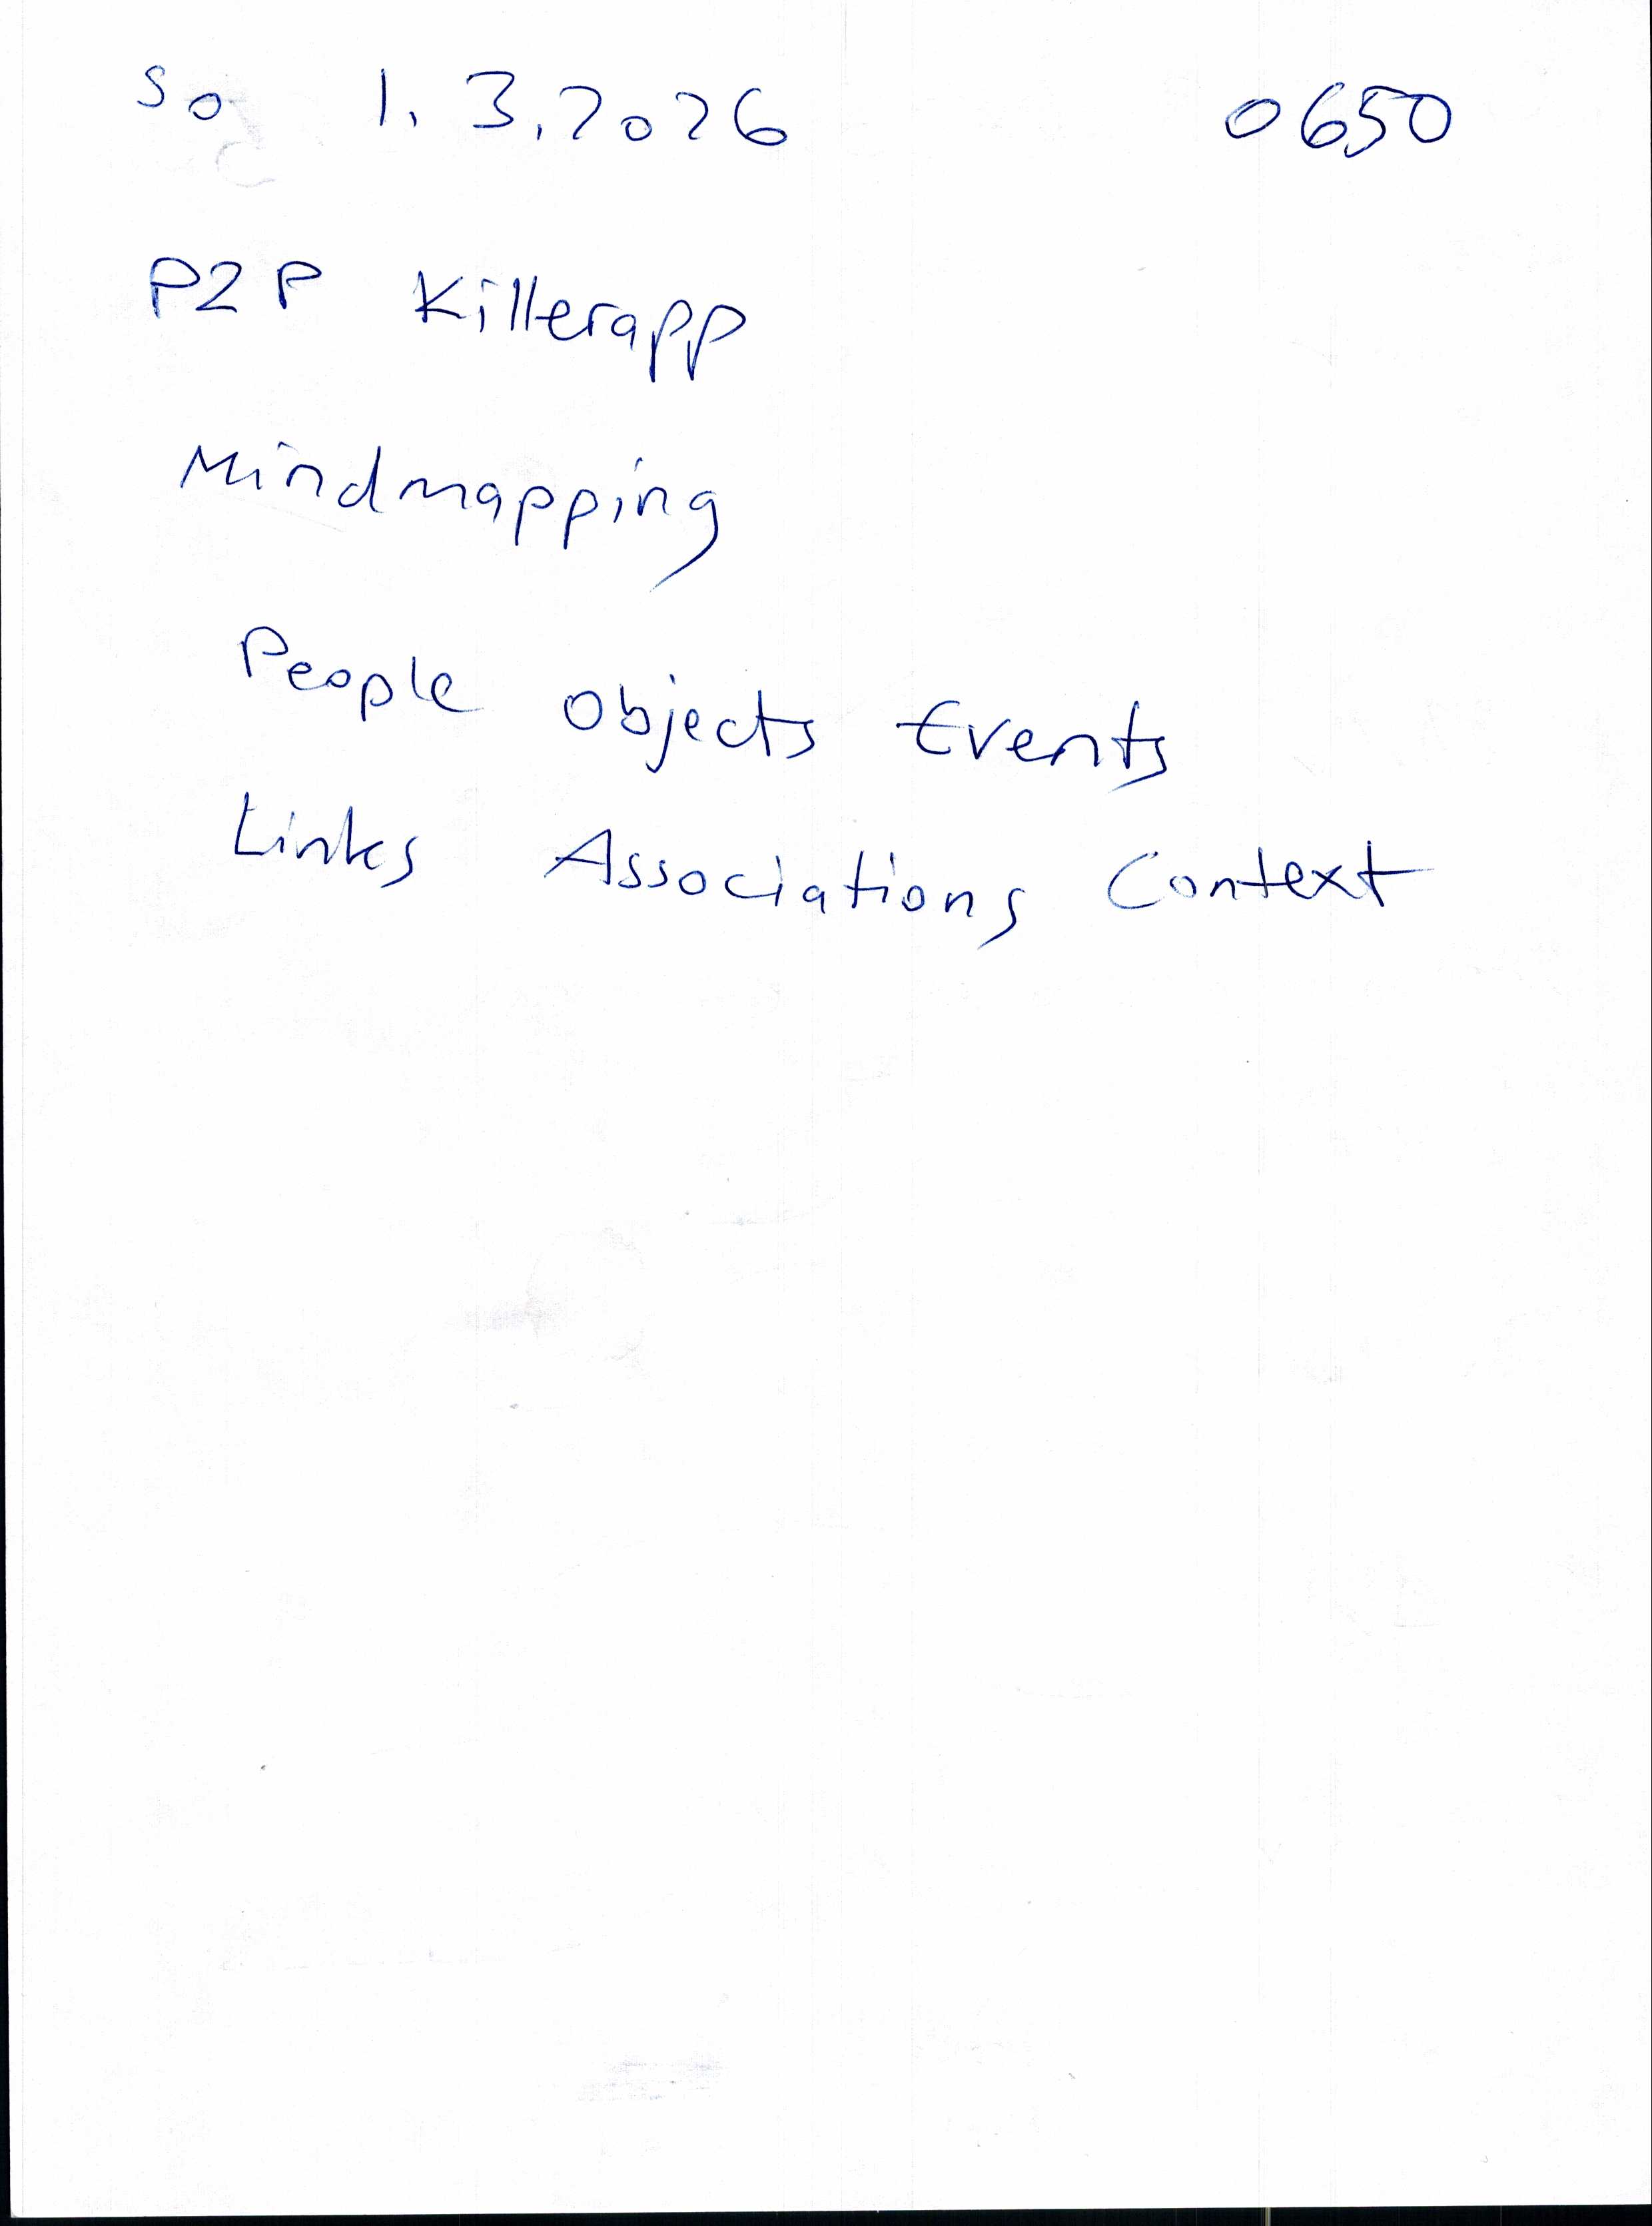 So 1.3.2026 0650
P2P Killerapp
Mindmapping
People Objects Events
Links Associations Context